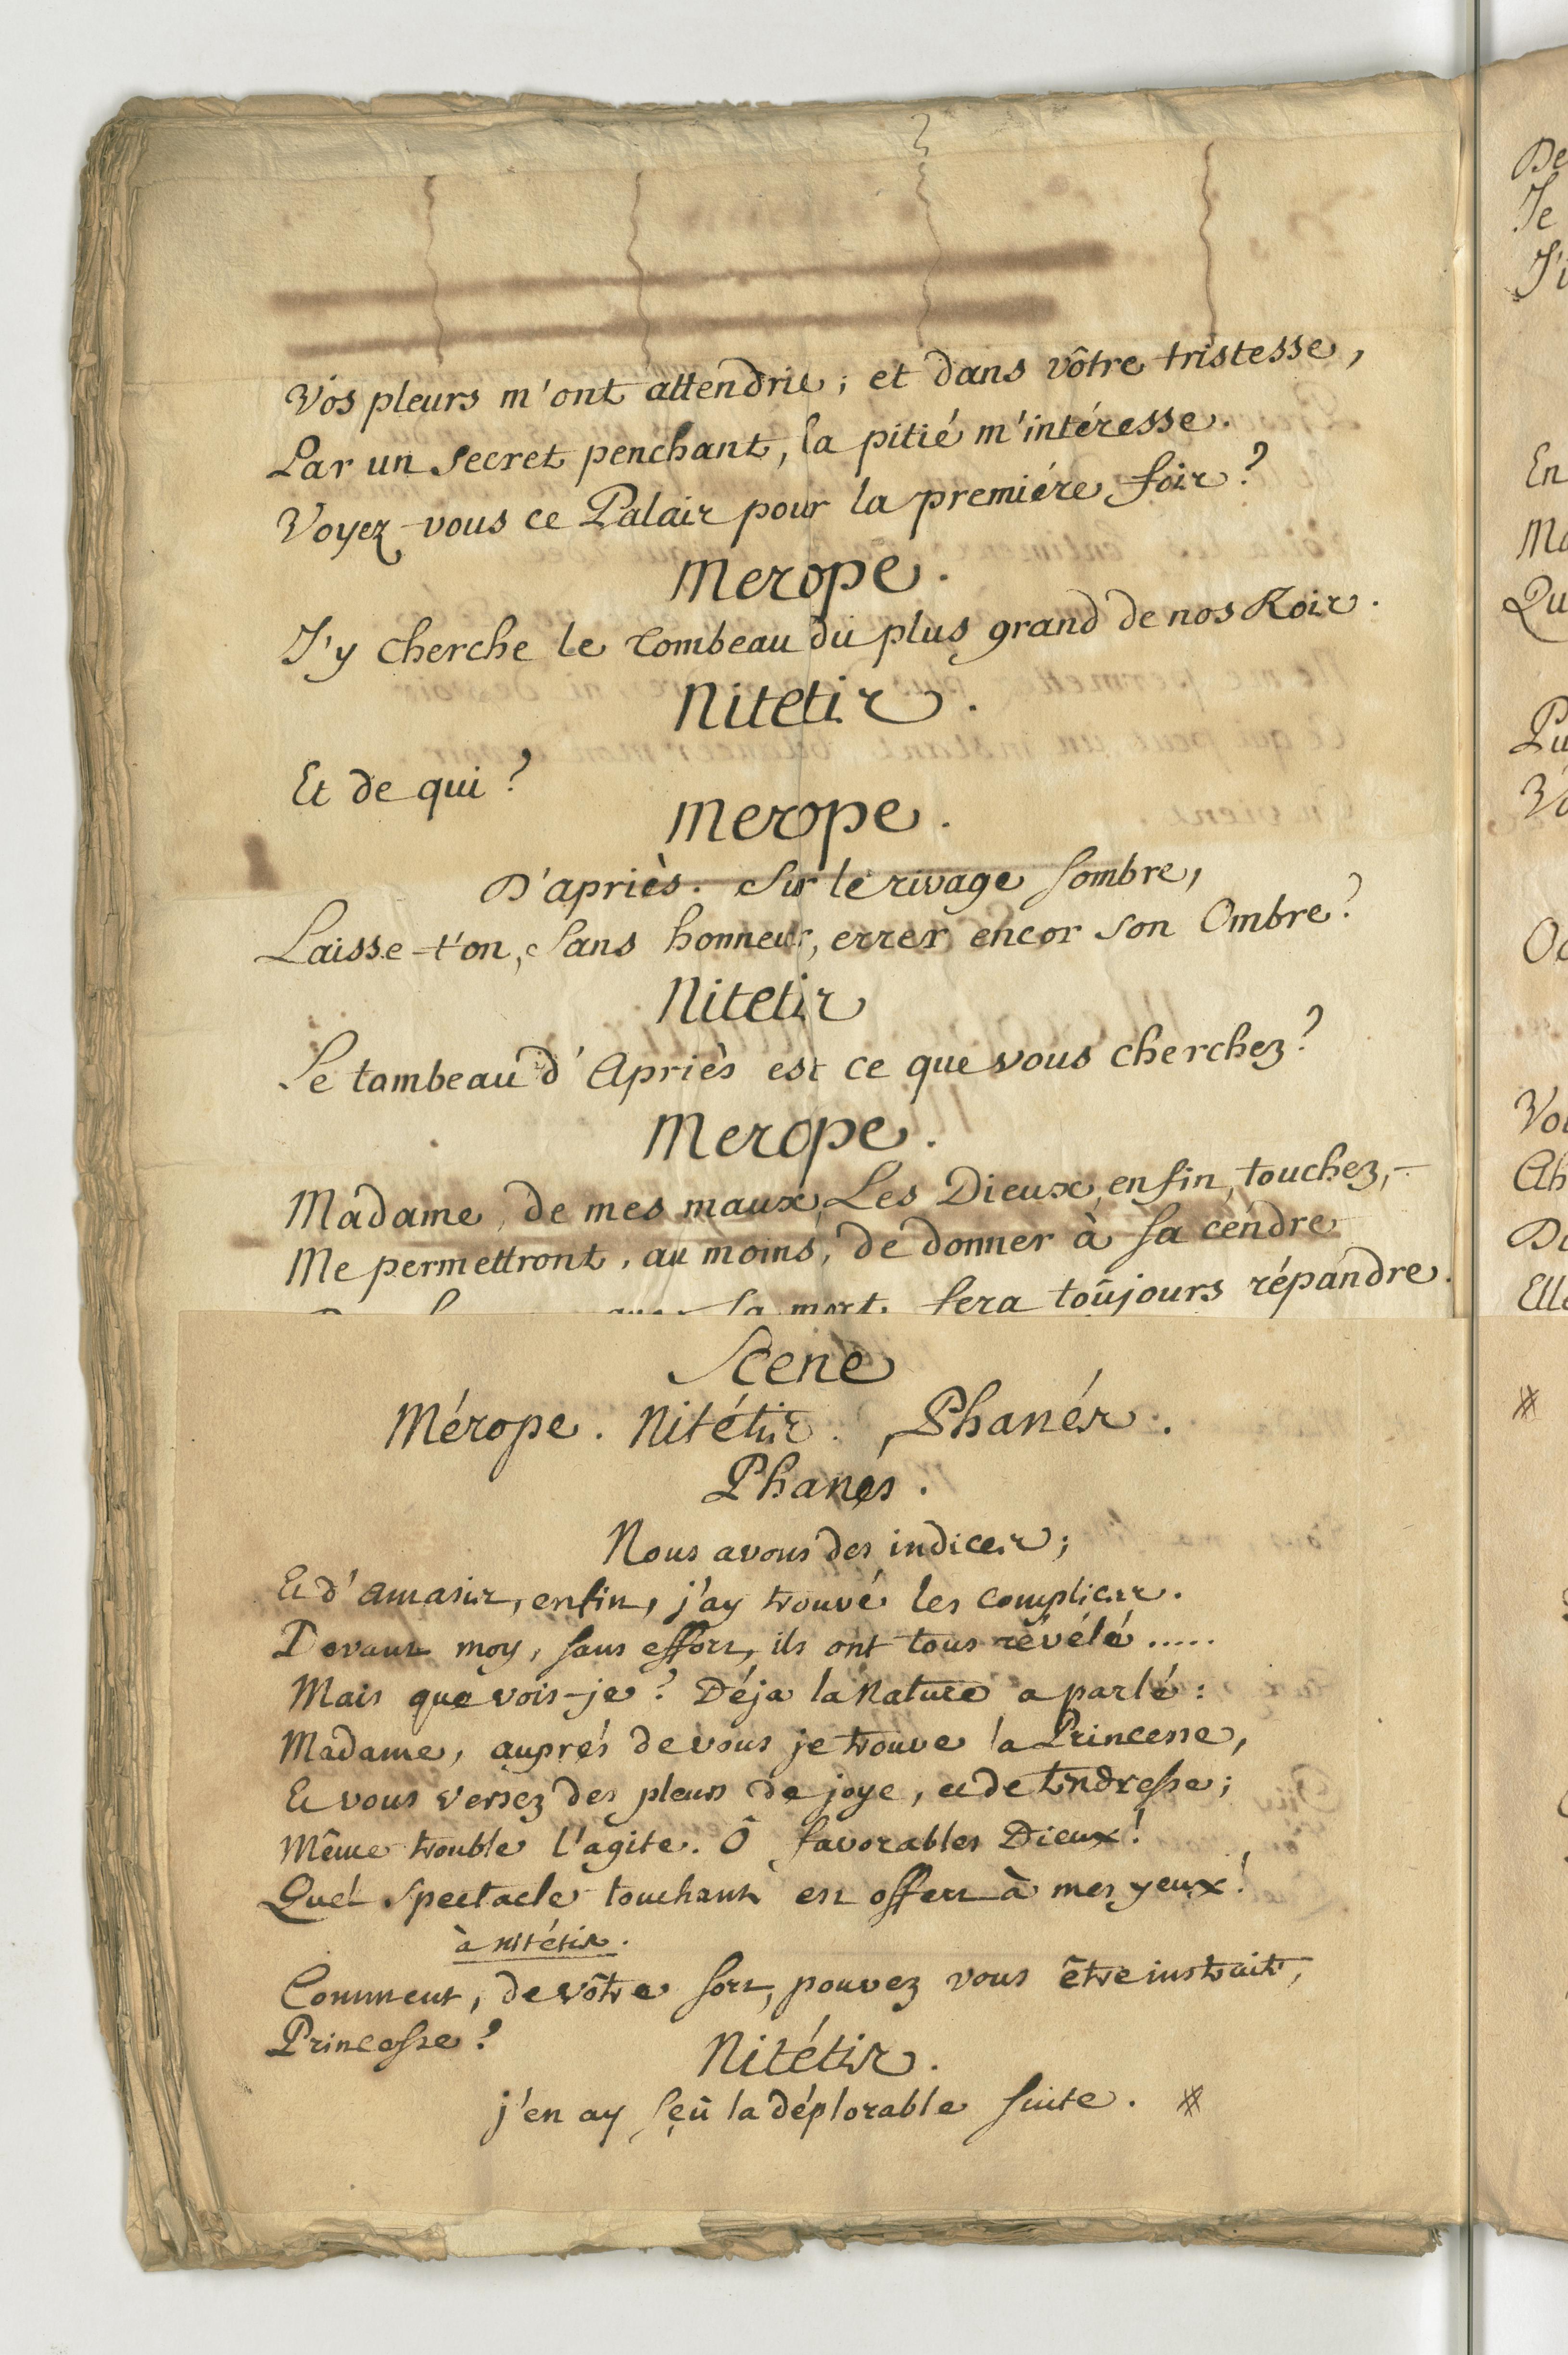 Vos pleurs m'ont attendrie ; et dans vôtre tristesse,
Par un secret penchant, la pitié m'intéresse.
Voyez-vous ce Palais pour la premiére fois ?
Merope.
J'y cherche le tombeau du plus grand de nos Rois.
Nitetis.
Et de qui ?
Merope.
D'apriès. Sur le rivage sombre,
Laisse-t'on, sans honneur, errer encor son Ombre ?
Nitetis
Le tombeau d'Apriès est ce que vous cherchez ?
Merope.
Madame, de mes maux Les Dieux, enfin, touchez,
Me permettront, au moins, de donner à sa cendre
sa mort, fera toûjours répandre.
Scene
Mérope. Nitétis. Phanés.
Phanés.
Nous avons des indices ;
Et d'amasis, enfin, j'ay trouvé les complices.
Devant moy, sans effort, ils ont tous révélé .....
Mais que vois-je ? Déja la Nature a parlé :
Madame, auprés de vous je trouve la Princesse,
Et vous versez des pleurs de joye, et de tendresse ;
Même trouble l'agite. Ô favorables Dieux !
Quel spectacle touchant est offert à mes yeux !
à nitétis.
Comment, de vôtre sort, pouvez vous être instruite,
Princesse ?
Nitétis.
j'en ay sçû la déplorable suite. #
De
Je
J'i
En
Ma
Qu
Pu
Vo
Oc
Vou
Ah
Da
Elle
#